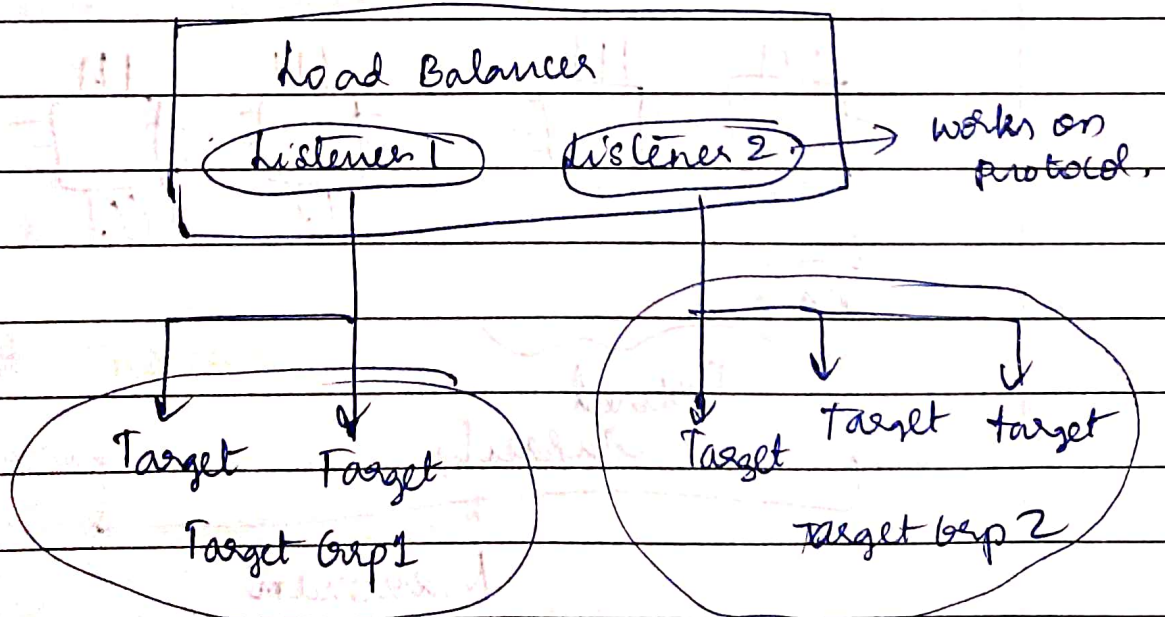 Load Balancer
Listener 1
Listener 2
works on
protocol.
Target
Target
Target
Target
target
Target Grp1
Target Grp 2